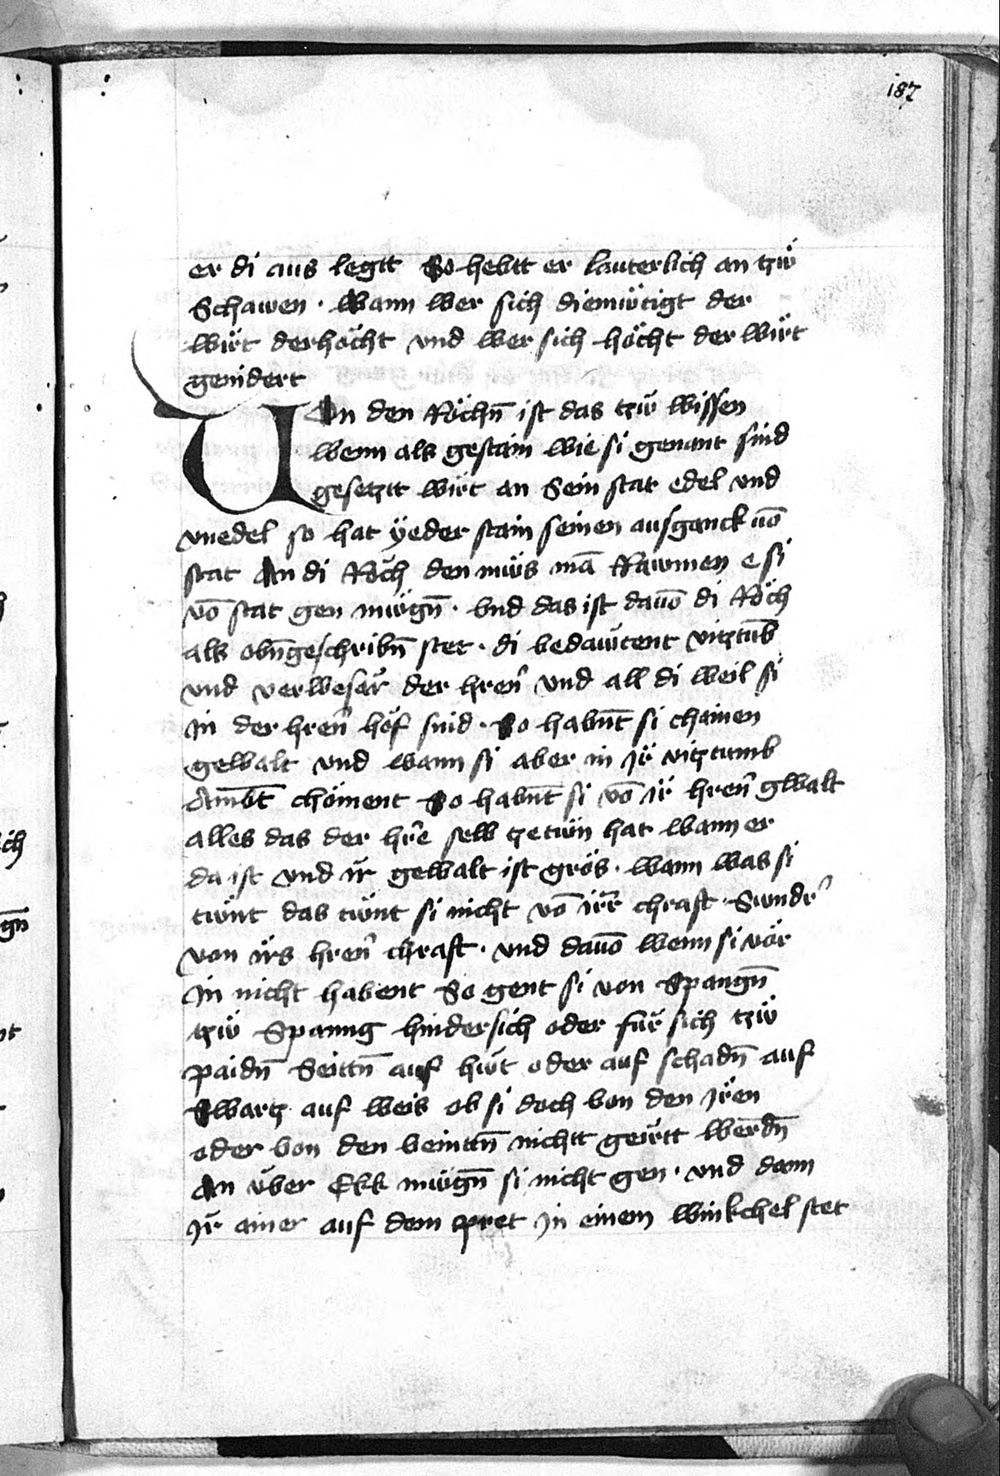 187
er di aus legtt So hebtt er lauterlich an tzẅ
Schawen · Wann wer sich diemütigt der
wirt derhöcht vnd wer sich höcht der wirt
genidert
Von den Röchn̄ ist das tzẅ wissen
wenn als gestain wie si genant sind
gesetztt wirt an Sein stat edel vnd
vnedel so hat ÿeder stain seinen ausganck võ
stat An di Röch den müs mã Rawmen e si
võ stat gen mügn̄ · vnd das ist dauõ di Röch
als obn̄geschribn̄ stet · di bedawtent vitztūb
vnd verwesär der hren̄ vnd all di weil si
in der hren̄ höf sind · So habnt̄ si chainen
gewalt vnd wann si aber in Jr̈ vitztumb
Ambt̄ chöment So habnt̄ si võ ir̈ hren̄ gwalt
alles das der hre̅ selb tzetün hat wann er
da ist vnd ir̈ gewalt ist grös · wann was si
tünt das tünt si nicht võ ir̈r chraft Sunder̄
von irs hren̄ chraft · vnd dauõ wenn si vor
In nicht habent So gent si von Spangn̄
tzẅ Spanng hindersich oder für sich tzẅ
paidn̄ Seittn̄ auf hüt oder auf schadn̄ auf
Swartz auf weis ob si doch von den Jren
oder von den veintn̄ nichtt geirtt werdn̄
An über Ekk mügn̄ si nicht gen · vnd dann
Jr̈ ainer auf dem pret In einem winkchel stet